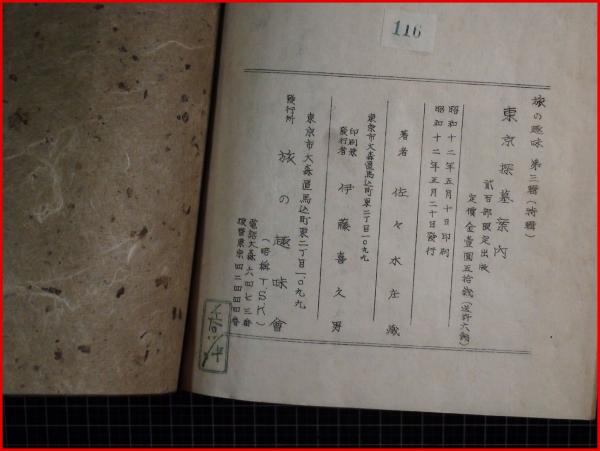 116
旅の趣味 第三輯(特輯)
東京探墓案内
貳百部限定出版
定價金壹圓五拾錢(送料六錢)
昭和十二年五月十日印刷
昭和十二年五月二十日發行
著者 佐々木庄蔵
東京市大森區馬込町東二丁目一〇九九
印刷兼
發行者 伊藤喜久男
東京市大森區馬込町東二丁目一〇九九
發行所 旅の趣味會
(略稱T.S.K)
電話大森六四七三番
振替東京四二四四四番